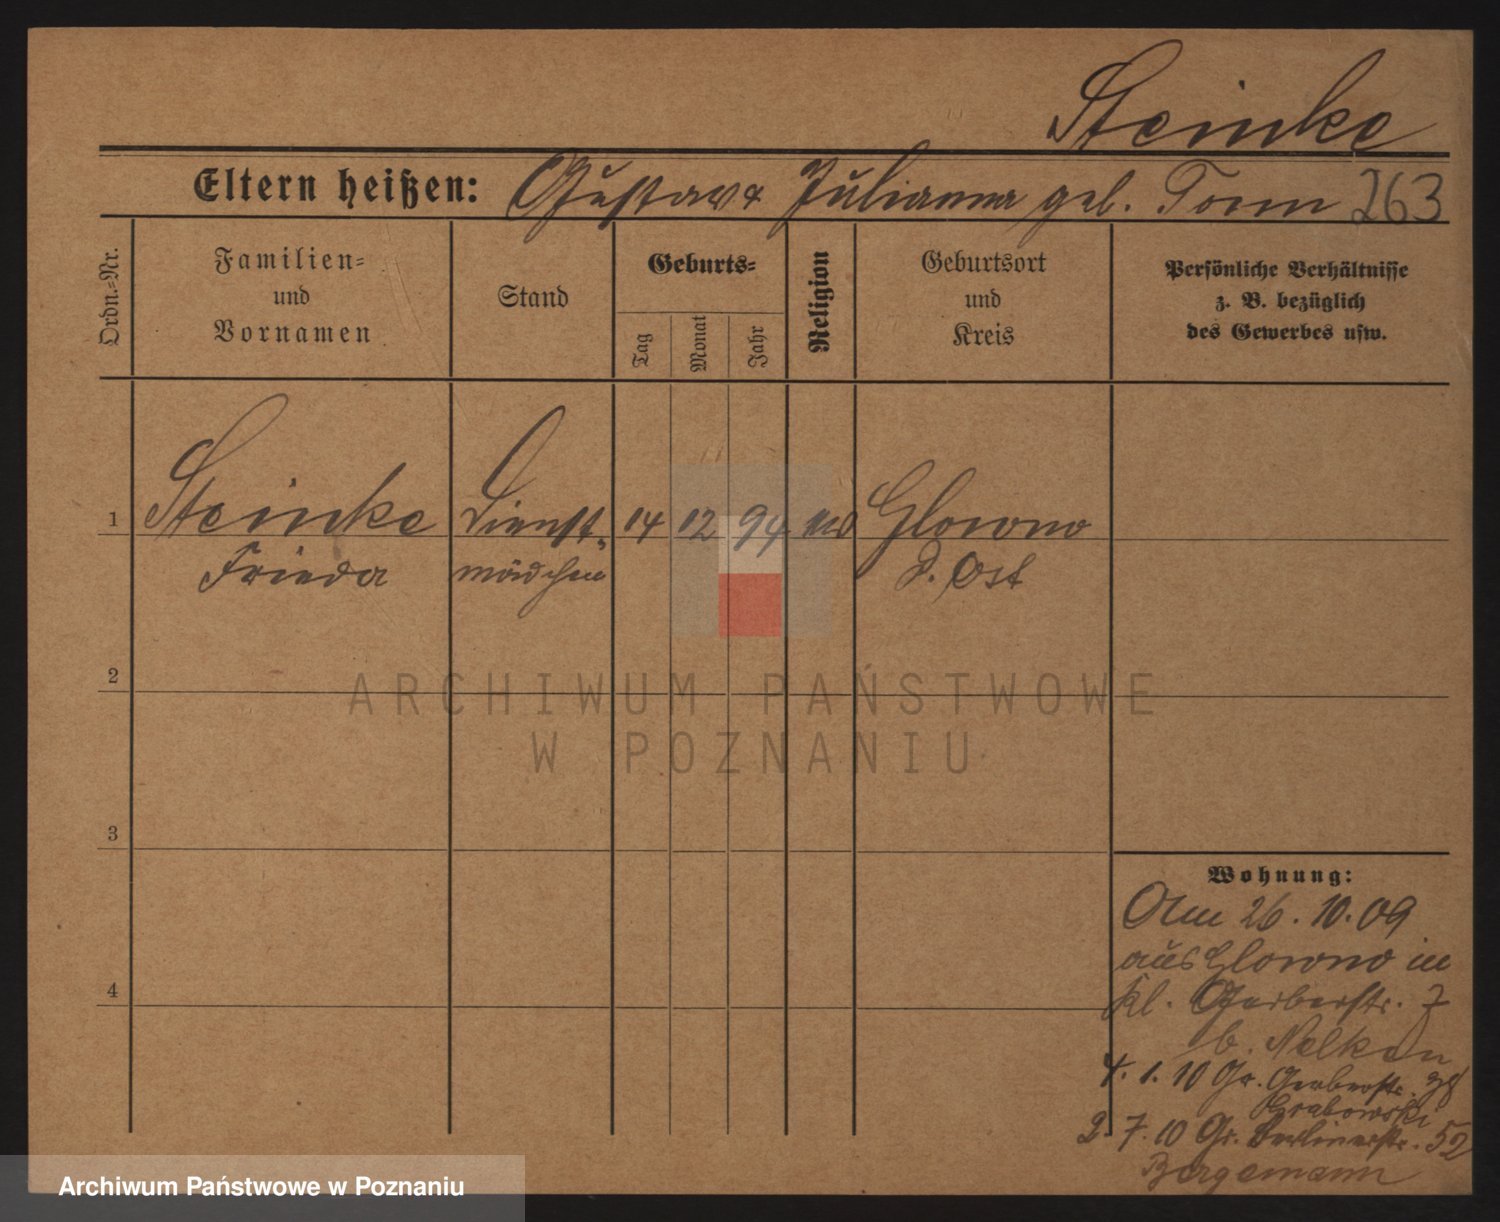 Steinke
Eltern heißen: Gustav & Julianna geb. Torm 263
Ordn.=Nr.
Familien=
und
Vornamen
Stand
Geburts=
Tag
Monat
Jahr
Religion
Geburtsort
und
Kreis
Persönliche Verhältnisse
z. B. bezüglich
des Gewerbes usw.
1
Steinke
Frieda
Dienst=
mädchen
14 12 94
Glowno
P. Ost
2
3
4
Wohnung:
Am 26.10.09
aus Glowno in
Kl. Gerberstr. 7
b. Nelken
4. 1. 10 Gr. Gerberstr. 38
Grabowski
2. 7. 10 Gr. Berlinerstr. 52
Bergemann
ARCHIWUM PAŃSTWOWE
W POZNANIU
Archiwum Państwowe w Poznaniu